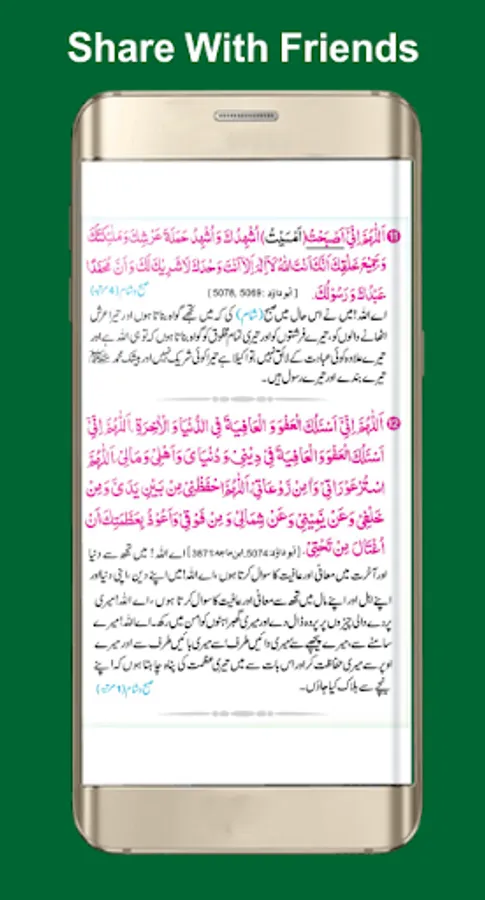 Share With Friends
11 اَللّٰهُمَّ اِنِّيْٓ اَصْبَحْتُ (اَمْسَيْتُ) اُشْهِدُكَ وَ اُشْهِدُ حَمَلَةَ عَرْشِكَ وَ مَلٰٓئِكَتَكَ
وَ جَمِيْعَ خَلْقِكَ اَنَّكَ اَنْتَ اللّٰهُ لَآ اِلٰهَ اِلَّآ اَنْتَ وَحْدَكَ لَا شَرِيْكَ لَكَ وَ اَنَّ مُحَمَّدًا
عَبْدُكَ وَ رَسُوْلُكَ. [ابو داؤد: 5069، 5078] صبح و شام (4 مرتبہ)
اے اللہ! میں نے اس حال میں صبح (شام) کی کہ میں تجھے گواہ بناتا ہوں اور تیرا عرش
اٹھانے والوں کو، تیرے فرشتوں کو اور تیری تمام مخلوق کو گواہ بناتا ہوں کہ تو ہی اللہ ہے اور
تیرے علاوہ کوئی عبادت کے لائق نہیں، تو اکیلا ہے تیرا کوئی شریک نہیں اور بیشک محمد ﷺ
تیرے بندے اور تیرے رسول ہیں۔
12 اَللّٰهُمَّ اِنِّيْٓ اَسْئَلُكَ الْعَفْوَ وَ الْعَافِيَةَ فِي الدُّنْيَا وَ الْاٰخِرَةِ، اَللّٰهُمَّ اِنِّيْٓ
اَسْئَلُكَ الْعَفْوَ وَ الْعَافِيَةَ فِيْ دِيْنِيْ وَ دُنْيَايَ وَ اَهْلِيْ وَ مَالِيْ، اَللّٰهُمَّ
اسْتُرْ عَوْرَاتِيْ وَ اٰمِنْ رَّوْعَاتِيْ، اَللّٰهُمَّ احْفَظْنِيْ مِنْ بَيْنِ يَدَيَّ وَ مِنْ
خَلْفِيْ وَ عَنْ يَّمِيْنِيْ وَ عَنْ شِمَالِيْ وَ مِنْ فَوْقِيْ وَ اَعُوْذُ بِعَظَمَتِكَ اَنْ
اُغْتَالَ مِنْ تَحْتِيْ. [ابو داؤد: 5074، ابن ماجه: 3871] اے اللہ! میں تجھ سے دنیا
اور آخرت میں معافی اور عافیت کا سوال کرتا ہوں، اے اللہ! میں اپنے دین، اپنی دنیا اور
اپنے اہل اور اپنے مال میں تجھ سے معافی اور عافیت کا سوال کرتا ہوں، اے اللہ! میری
پردے والی چیزوں پر پردہ ڈال دے اور میری گھبراہٹوں کو امن میں رکھ۔ اے اللہ! میرے
سامنے سے، میرے پیچھے سے، میری دائیں طرف سے، میری بائیں طرف سے اور میرے
اوپر سے میری حفاظت کر اور اس بات سے میں تیری عظمت کی پناہ چاہتا ہوں کہ اپنے
نیچے سے ہلاک کیا جاؤں۔ صبح و شام (1 مرتبہ)